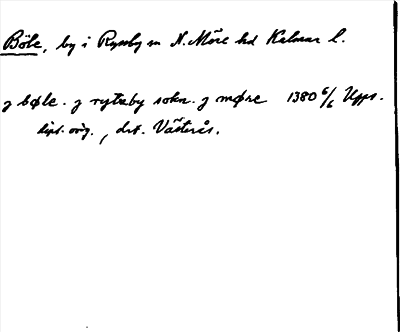 Böle, by i Ryssby sn N. Möre hd Kalmar l.
j bøle. j rytzby sokn. j møre 1380 6/6 Upps.
dipl. orig., dat. Västerås.